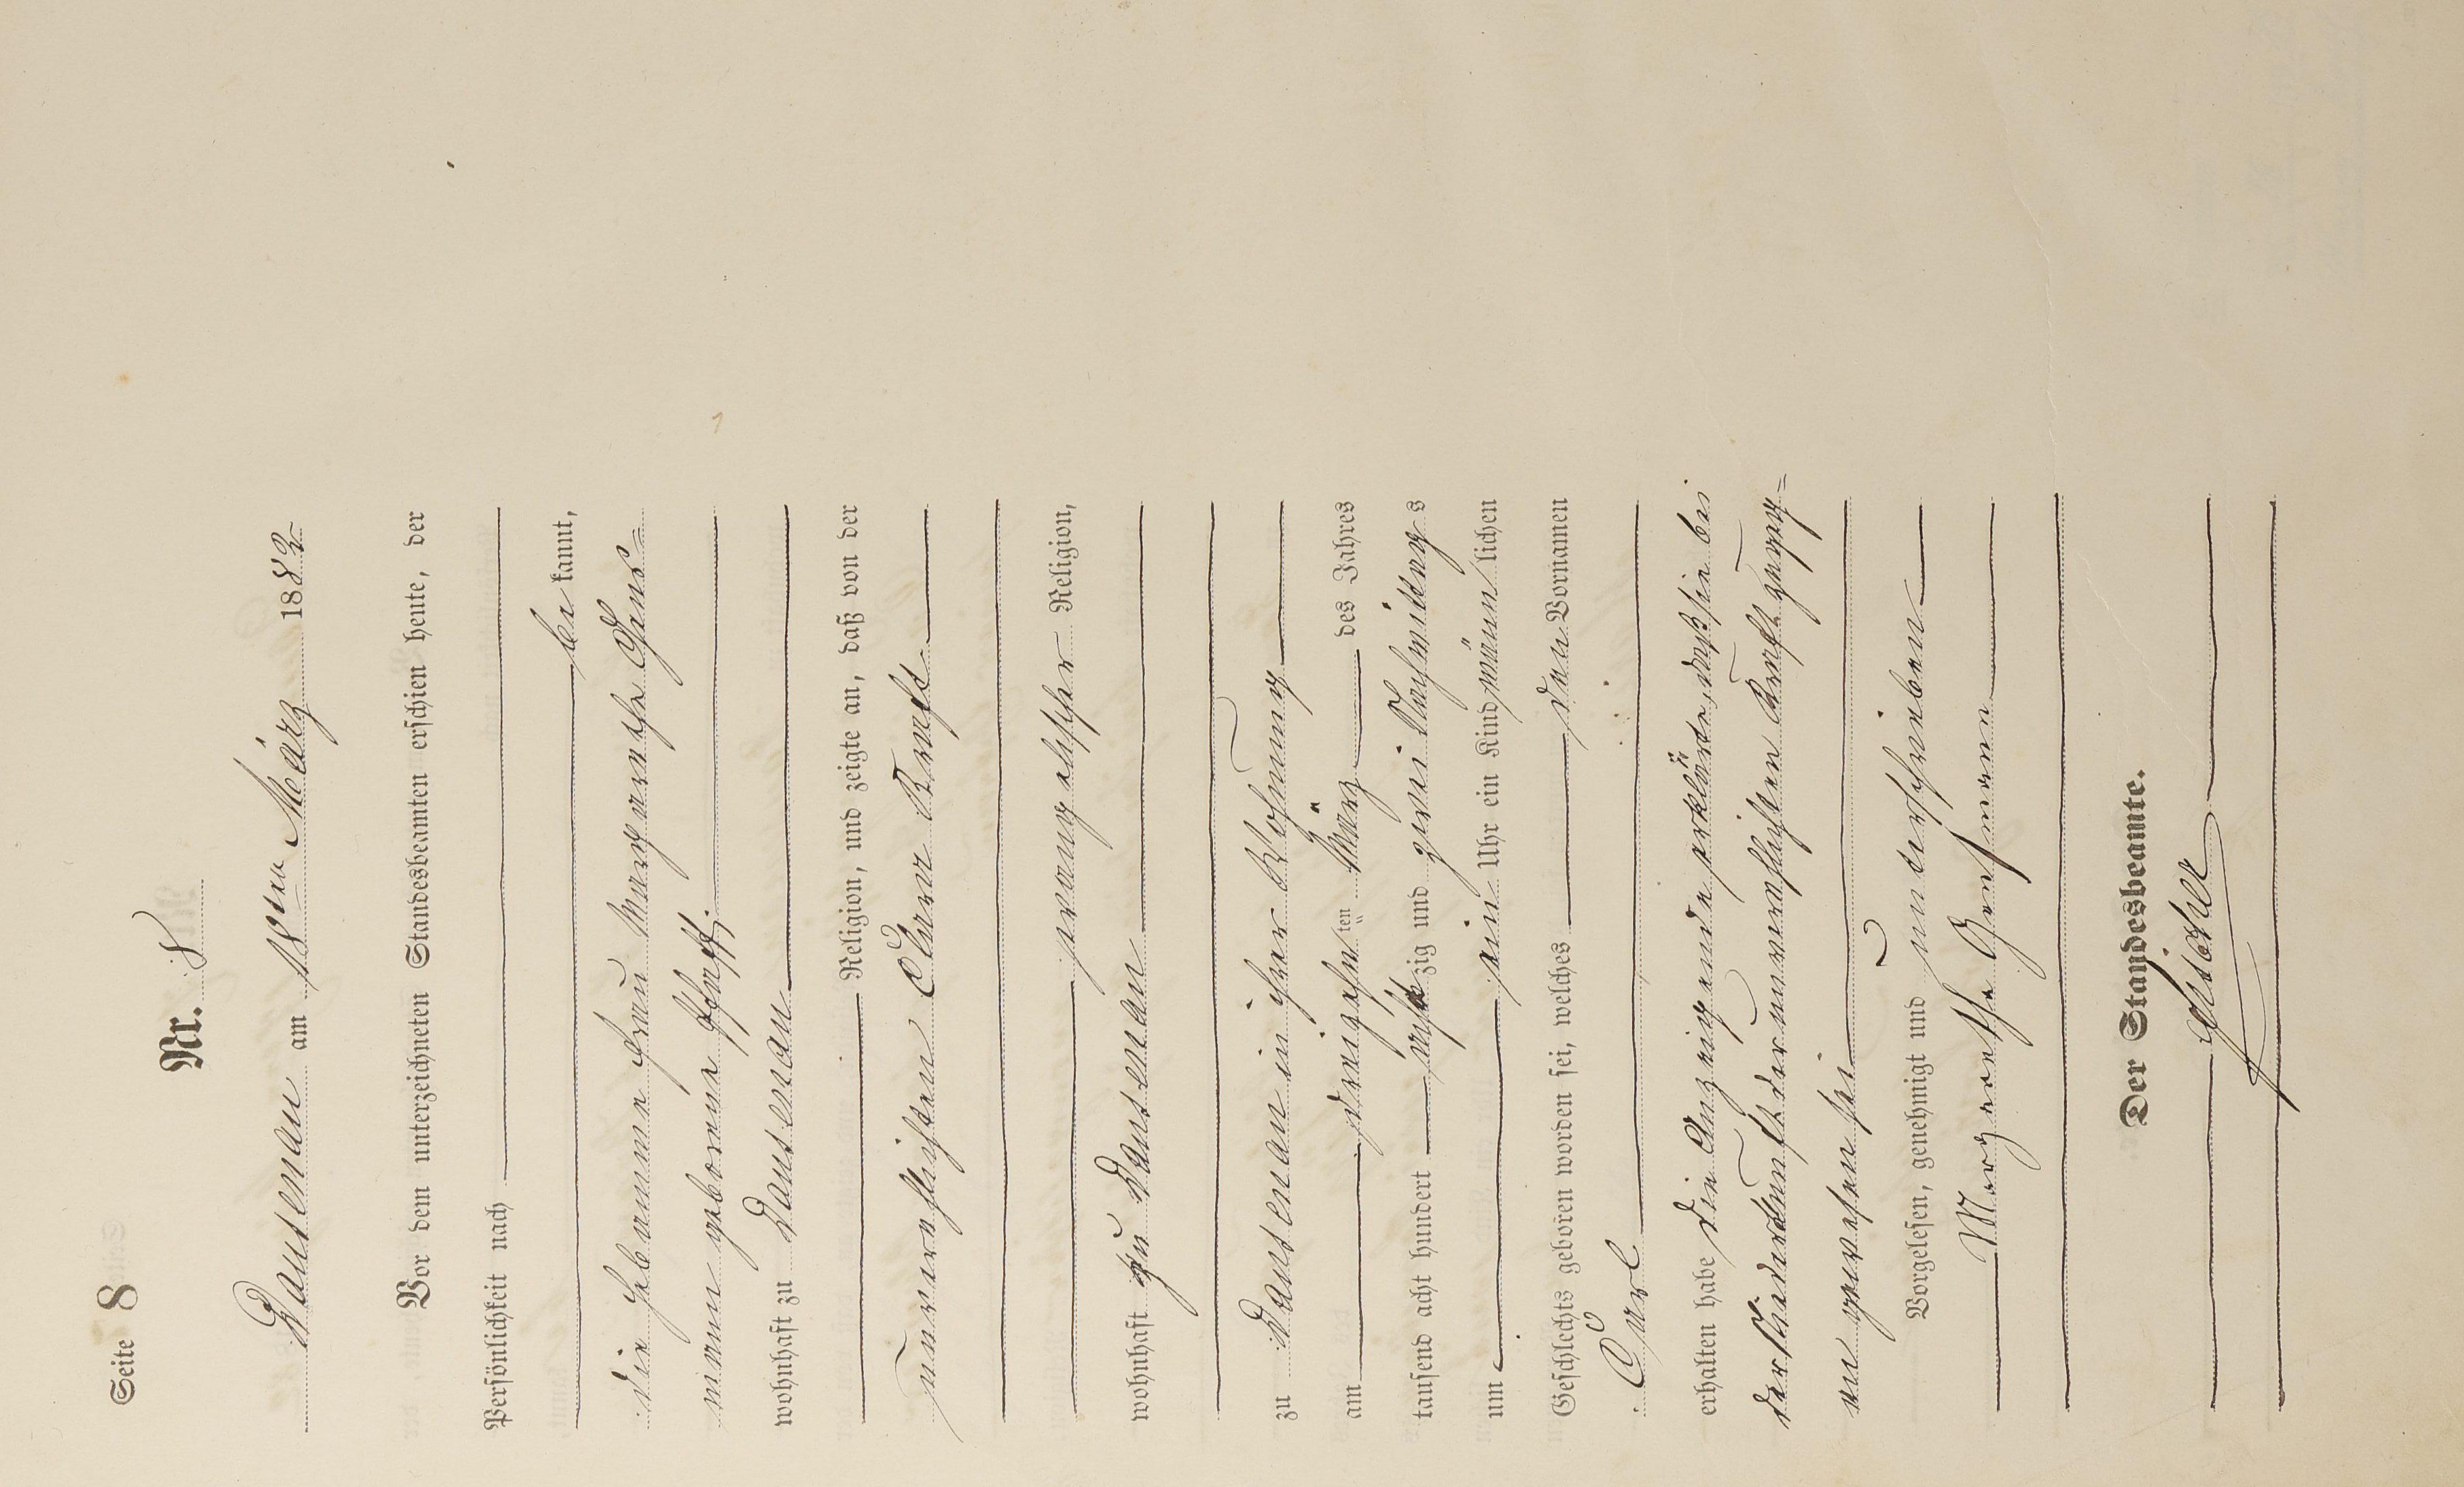 Seite 8
Nr. 8
Dausenau am 18ten März 1882
Vor dem unterzeichneten Standesbeamten erschien heute, der
Persönlichkeit nach
be kannt,
die Hebamme Frau Margarethe Gens=
mann geborene
wohnhaft zu Dausenau
Religion, und zeigte an, daß von der
unverehelichten Clara Kraft
evangelischer Religion,
wohnhaft zu Dausenau
zu Dausenau in ihrer Wohnung
am dreizehn ten März des Jahres
tausend acht hundert acht zig und zwei Nachmittag s
um ein Uhr ein Kind männ lichen
Geschlechts geboren worden sei, welches den Vornamen
Carl
erhalten habe die Anzeigende erklärte, daß sie bei
der Niederkunft der unverehelichten Kraft zuge=
gen gewesen sei
Vorgelesen, genehmigt und unterschrieben
Margarethe Gensmann
Der Standesbeamte.